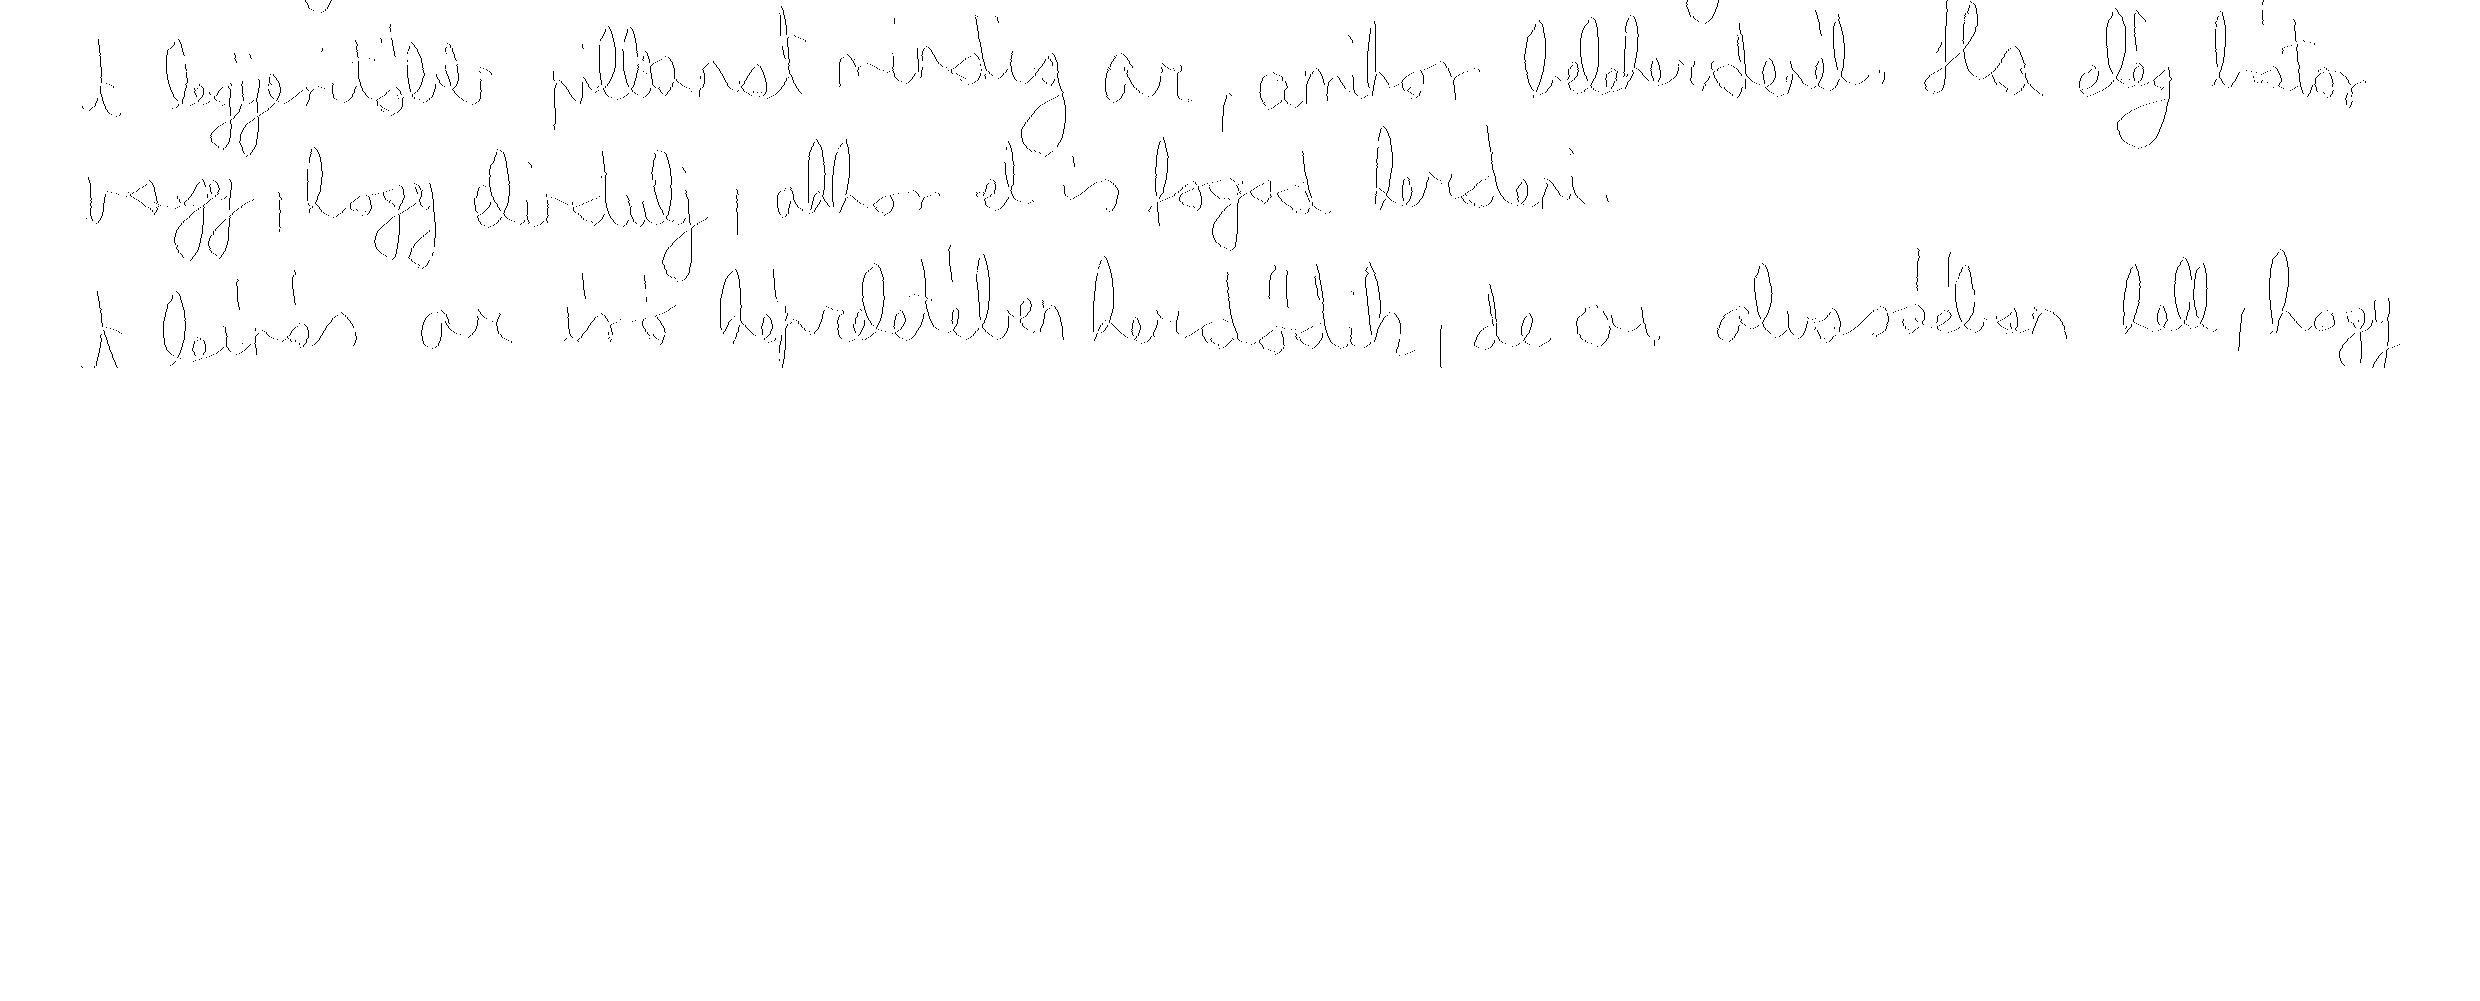 A legijesztőbb pillanat mindig az, amikor belekezdenél. Ha elég bátor
vagy, hogy elindulj, akkor el is fogod kezdeni.
A leírás az író képzeletében kezdődik, de az olvasóéban kell, hogy